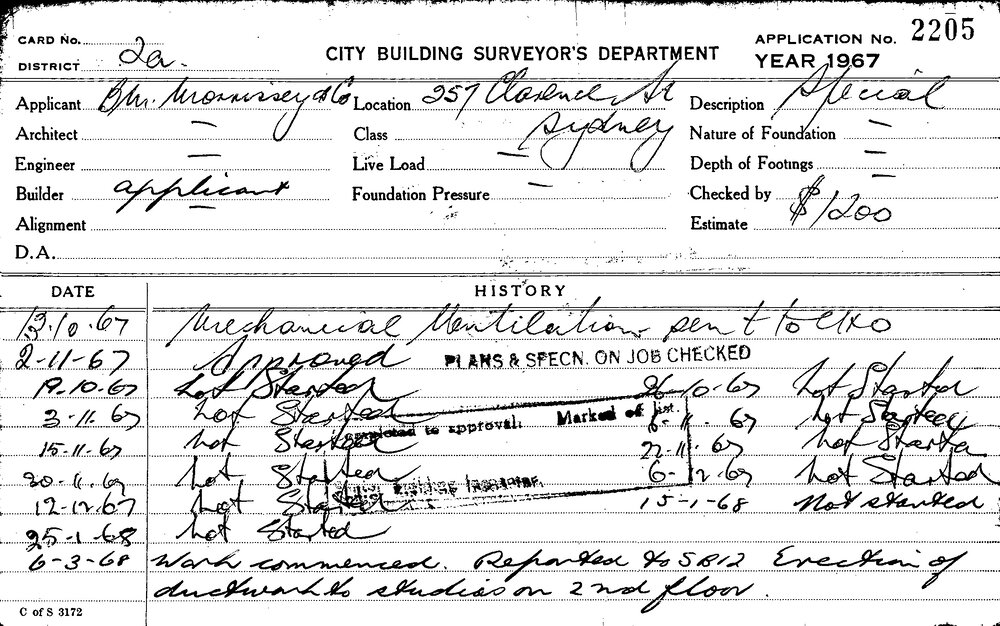 CARD No. 2a.
DISTRICT
CITY BUILDING SURVEYOR'S DEPARTMENT
APPLICATION No. 2205
YEAR 1967
Applicant B.W. Morrissey & Co Location 257 Clarence St Description Special
Architect — Class Sydney Nature of Foundation —
Engineer — Live Load — Depth of Footings —
Builder applicant Foundation Pressure — Checked by
Alignment — Estimate $1200
D.A.
DATE HISTORY
13.10.67 Mechanical Ventilation sent to
2-11-67 Approved PLANS & SPECN. ON JOB CHECKED
19.10.67 Not Started 26-10-67 Not Started
3-11.67 Not Started 67 Not Started
Completed to approval: Marked off list.
15-11-67 Not Started 22-11-67 Not Started
30-11-67 Not Started 6-12-67 Not Started
Building Inspector.
12-12.67 Not Started 15-1-68 Not started
25-1-68 Not Started
6-3-68 Work commenced. Reported to SB12 Erection of
ductwork to studios on 2nd floor.
C of S 3172